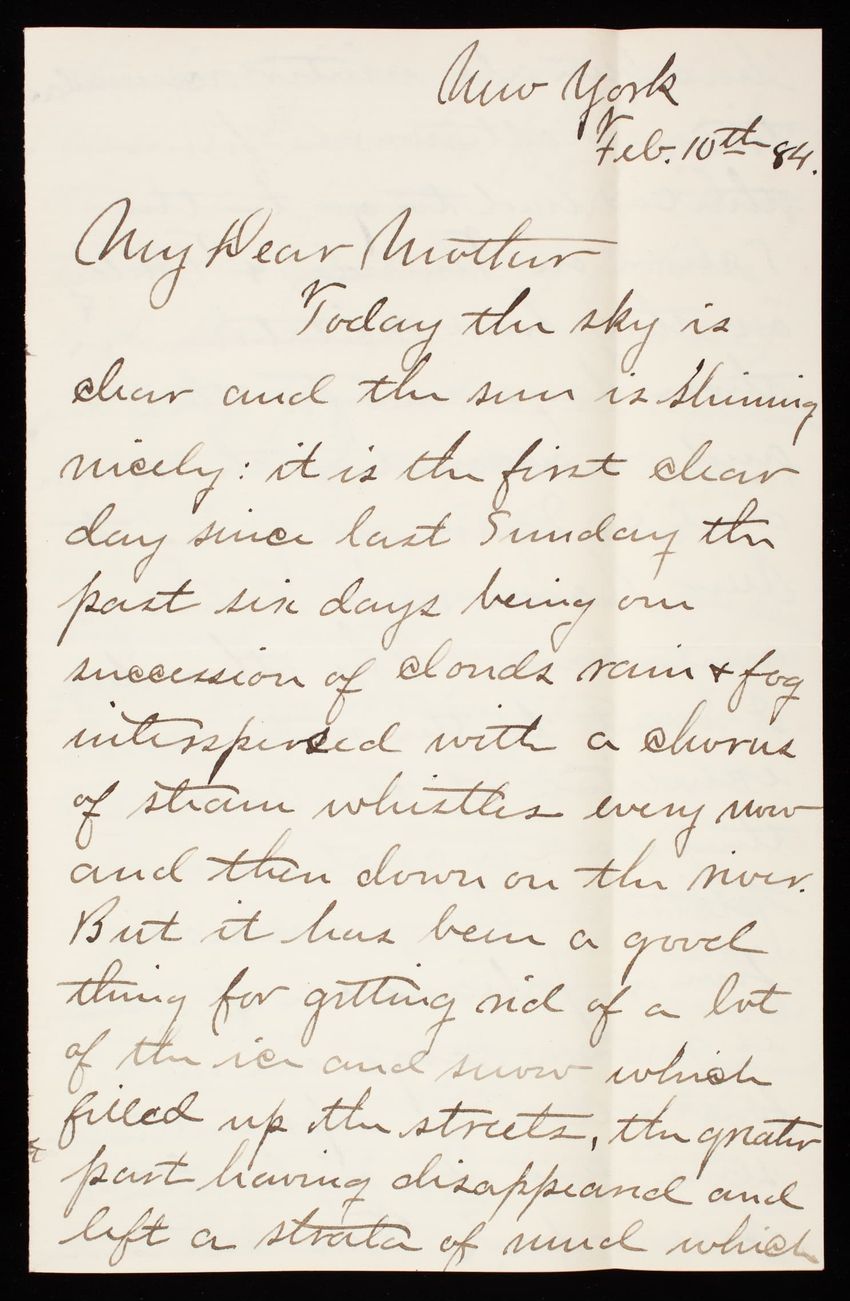 New York
Feb. 10th 84.
My Dear Mother
Today the sky is
clear and the sun is shining
nicely: it is the first clear
day since last Sunday the
past six days being one
succession of clouds rain & fog
interspersed with a chorus
of steam whistles every now
and then down on the river.
But it has been a good
thing for getting rid of a lot
of the ice and snow which
filled up the streets, the greater
part having disappeared and
left a strata of mud which